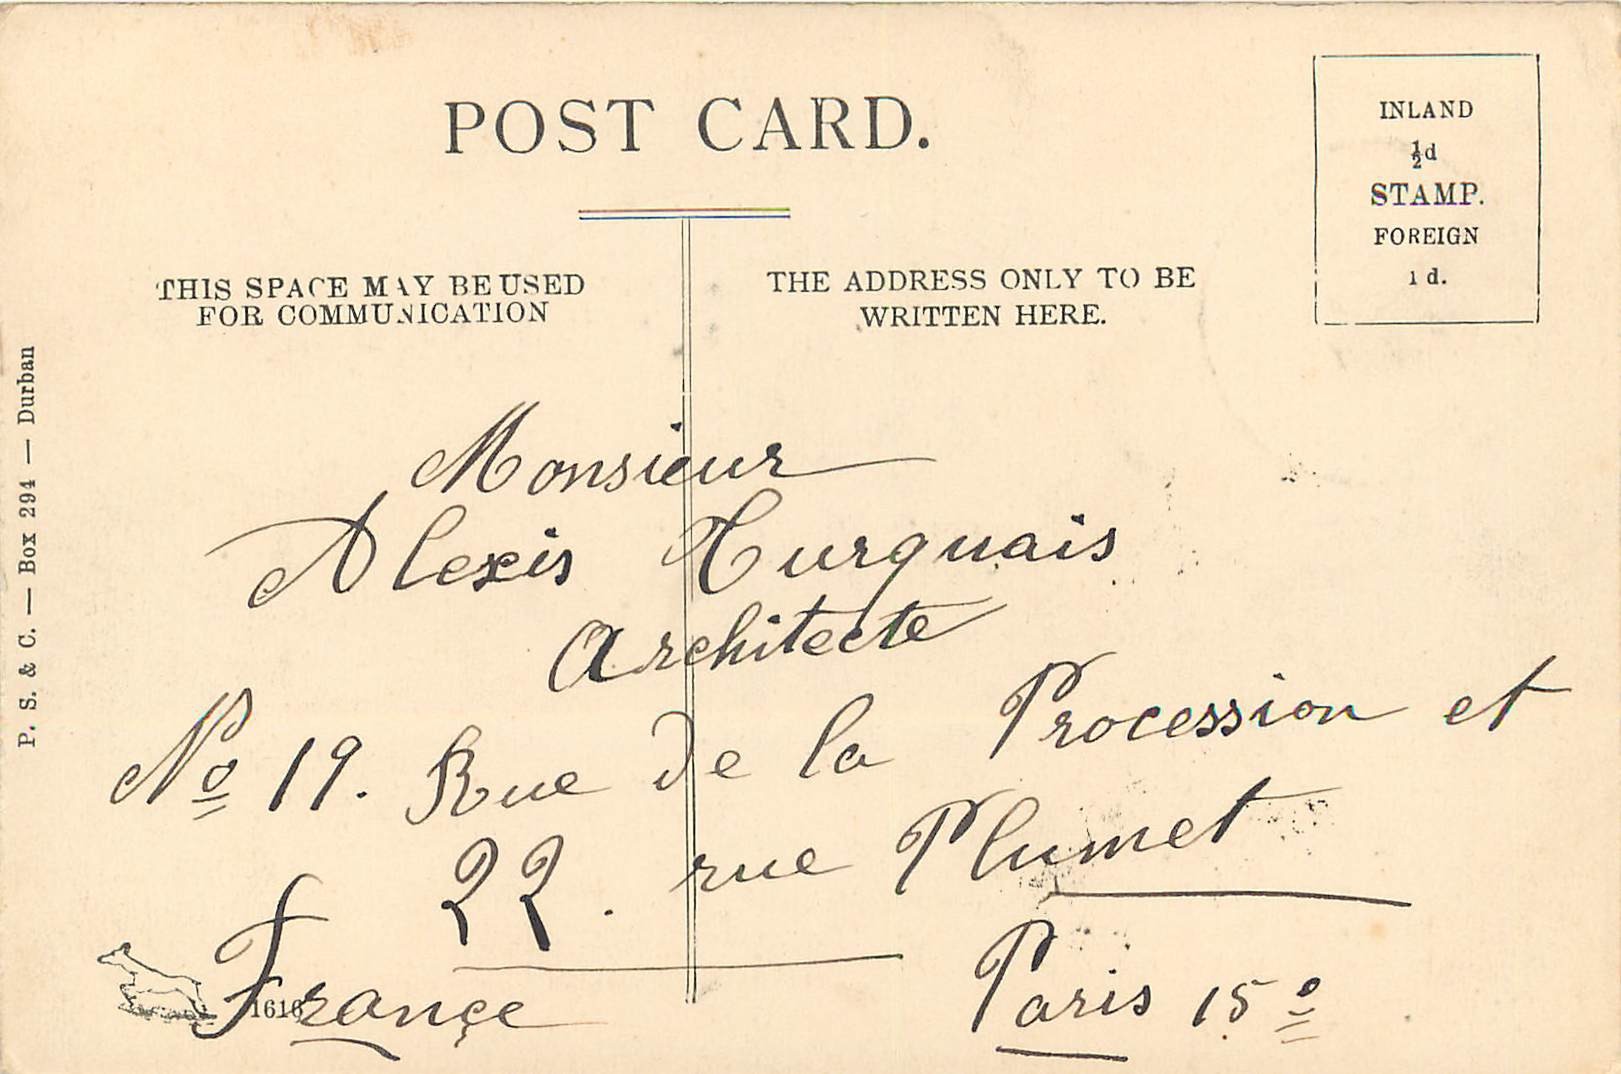 POST CARD.
INLAND
½d
STAMP.
FOREIGN
1d.
THIS SPACE MAY BE USED
FOR COMMUNICATION
THE ADDRESS ONLY TO BE
WRITTEN HERE.
P. S. & C. — Box 294 — Durban
Monsieur
Alexis Turquais
Architecte
No 19. Rue de la Procession et
22. rue Plumet
Françe
Paris 15e
1616